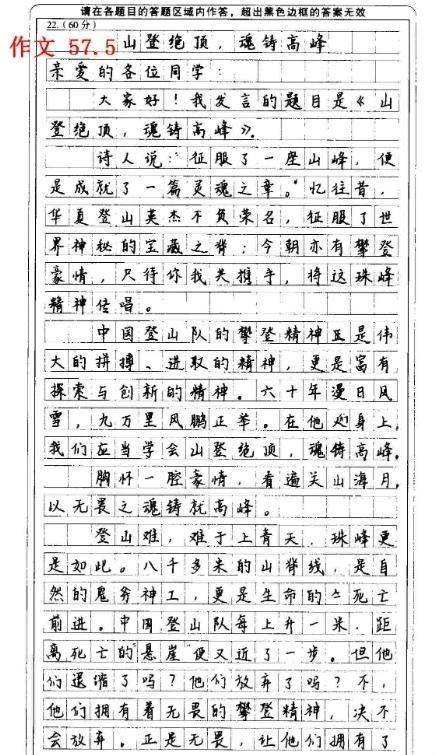 请在各题目的答题区域内作答，超出黑色边框的答案无效
22.（60分）
作文 57.5
山登绝顶，魂铸高峰
亲爱的各位同学：
大家好！我发言的题目是《山
登绝顶，魂铸高峰》。
诗人说："征服了一座山峰，便
是成就了一篇灵魂之章。"忆往昔，
华夏登山英杰不负荣名，征服了世
界神秘的宝藏之脊；今朝亦有攀登
豪情，只待你我共携手，将这珠峰
精神传唱。
中国登山队的攀登精神正是伟
大的拼搏、进取的精神，更是富有
探索与创新的精神。六十年漫日风
雪，九万里风鹏正举。在他们身上，
我们应当学会山登绝顶，魂铸高峰。
胸怀一腔豪情，看遍关山海月，
以无畏之魂铸就高峰。
登山难，难于上青天，珠峰更
是如此。八千多米的山脊线，是自
然的鬼斧神工，更是生命的死亡
前进。中国登山队每上升一米，距
离死亡的"悬崖"便又近了一步。但他
们退缩了吗？他们放弃了吗？不，
他们拥有着无畏的攀登精神，决不
会放弃。正是无畏，让他们拥有了